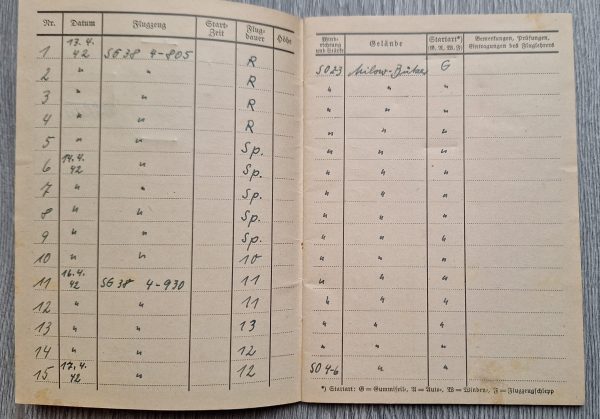 Nr. Datum Flugzeug Start-Zeit Flug-dauer Höhe Wind-richtung und Stärke Gelände Startart*) (G, A, W, F) Bemerkungen, Prüfungen, Eintragungen des Fluglehrers
1 13.4.42 SG 38 4-805 R SO 2-3 Milow-Bützer G
2 " " R " " "
3 " " R " " "
4 " " R " " "
5 " " Sp. " " "
6 14.4.42 " Sp. " " "
7 " " Sp. " " "
8 " " Sp. " " "
9 " " Sp. " " "
10 " " 10 " " "
11 16.4.42 SG 38 4-930 11 " " "
12 " " 11 " " "
13 " " 13 " " "
14 " " 12 " " "
15 17.4.42 " 12 SO 4-6 " "
*) Startart: G = Gummiseil, A = Auto, W = Winden, F = Flugzeugschlepp